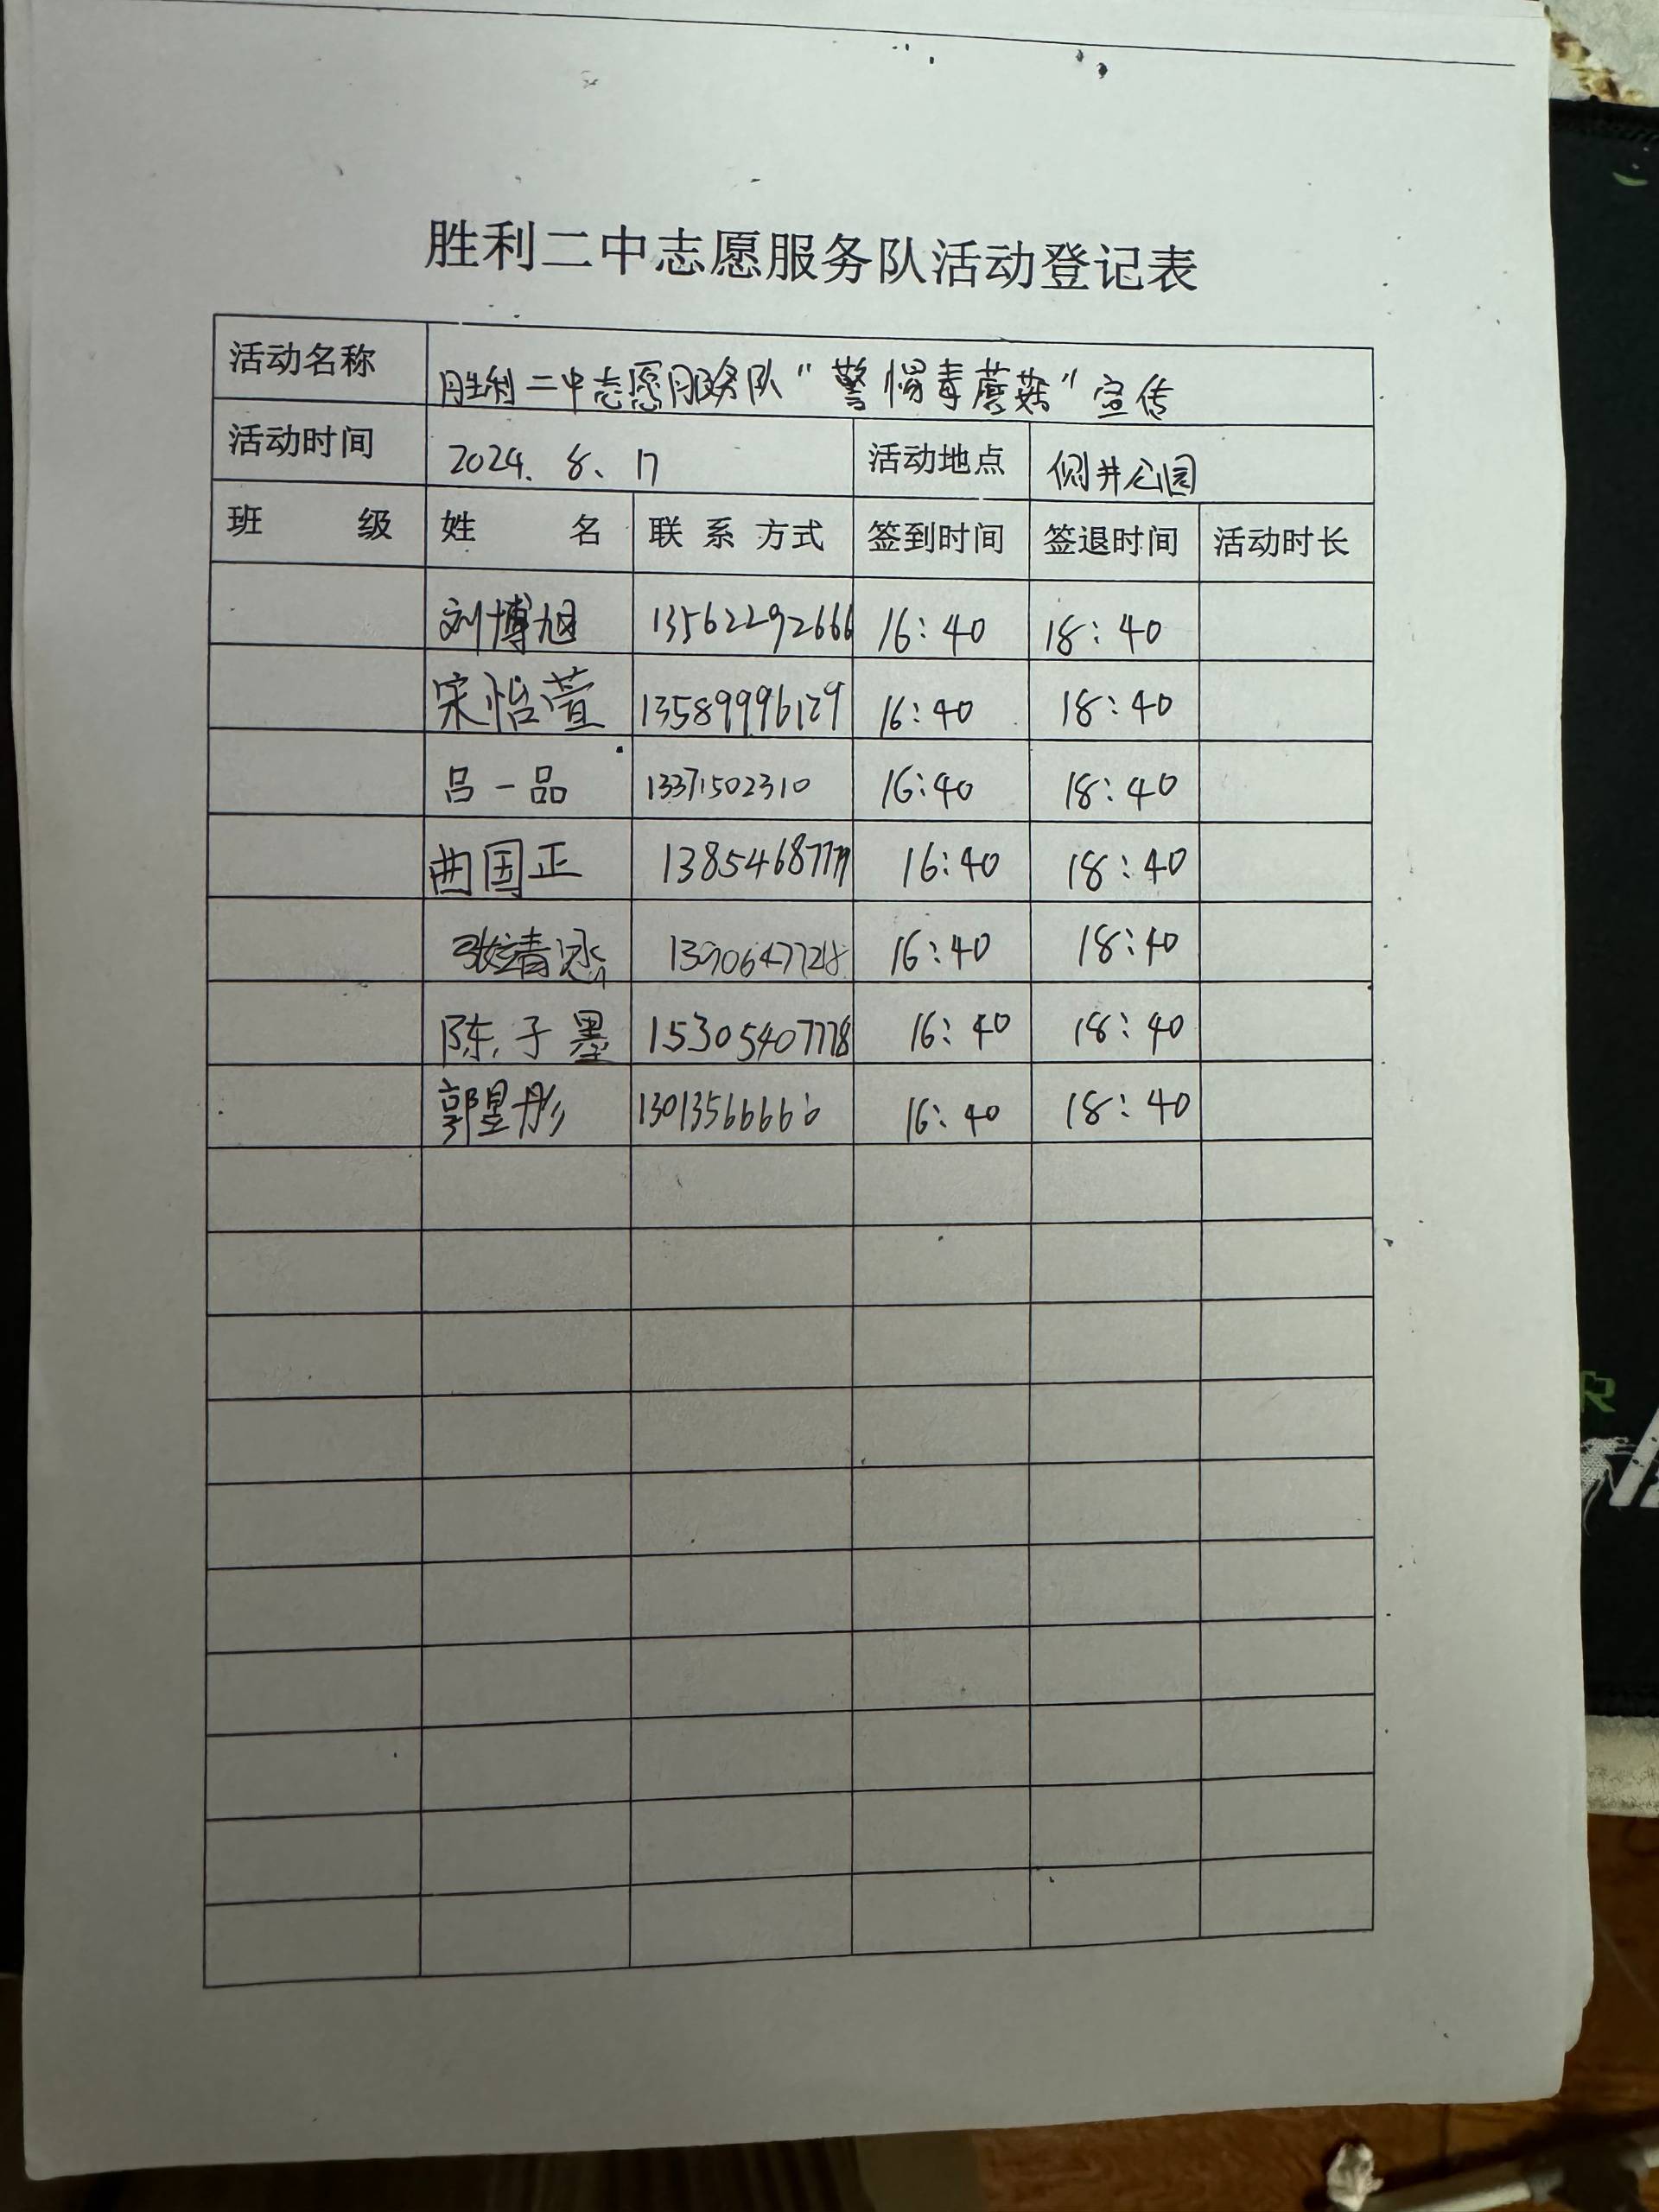 胜利二中志愿服务队活动登记表
活动名称 胜利二中志愿服务队“警惕毒蘑菇”宣传
活动时间 2024. 8. 17 活动地点 公园
班 级 姓 名 联系方式 签到时间 签退时间 活动时长
刘博旭 13562292666 16:40 18:40
宋怡萱 13589996129 16:40 18:40
吕一品 13371502310 16:40 18:40
曲国正 16:40 18:40
张靖涵 16:40 18:40
陈子墨 15305407778 16:40 18:40
郭昱彤 16:40 18:40